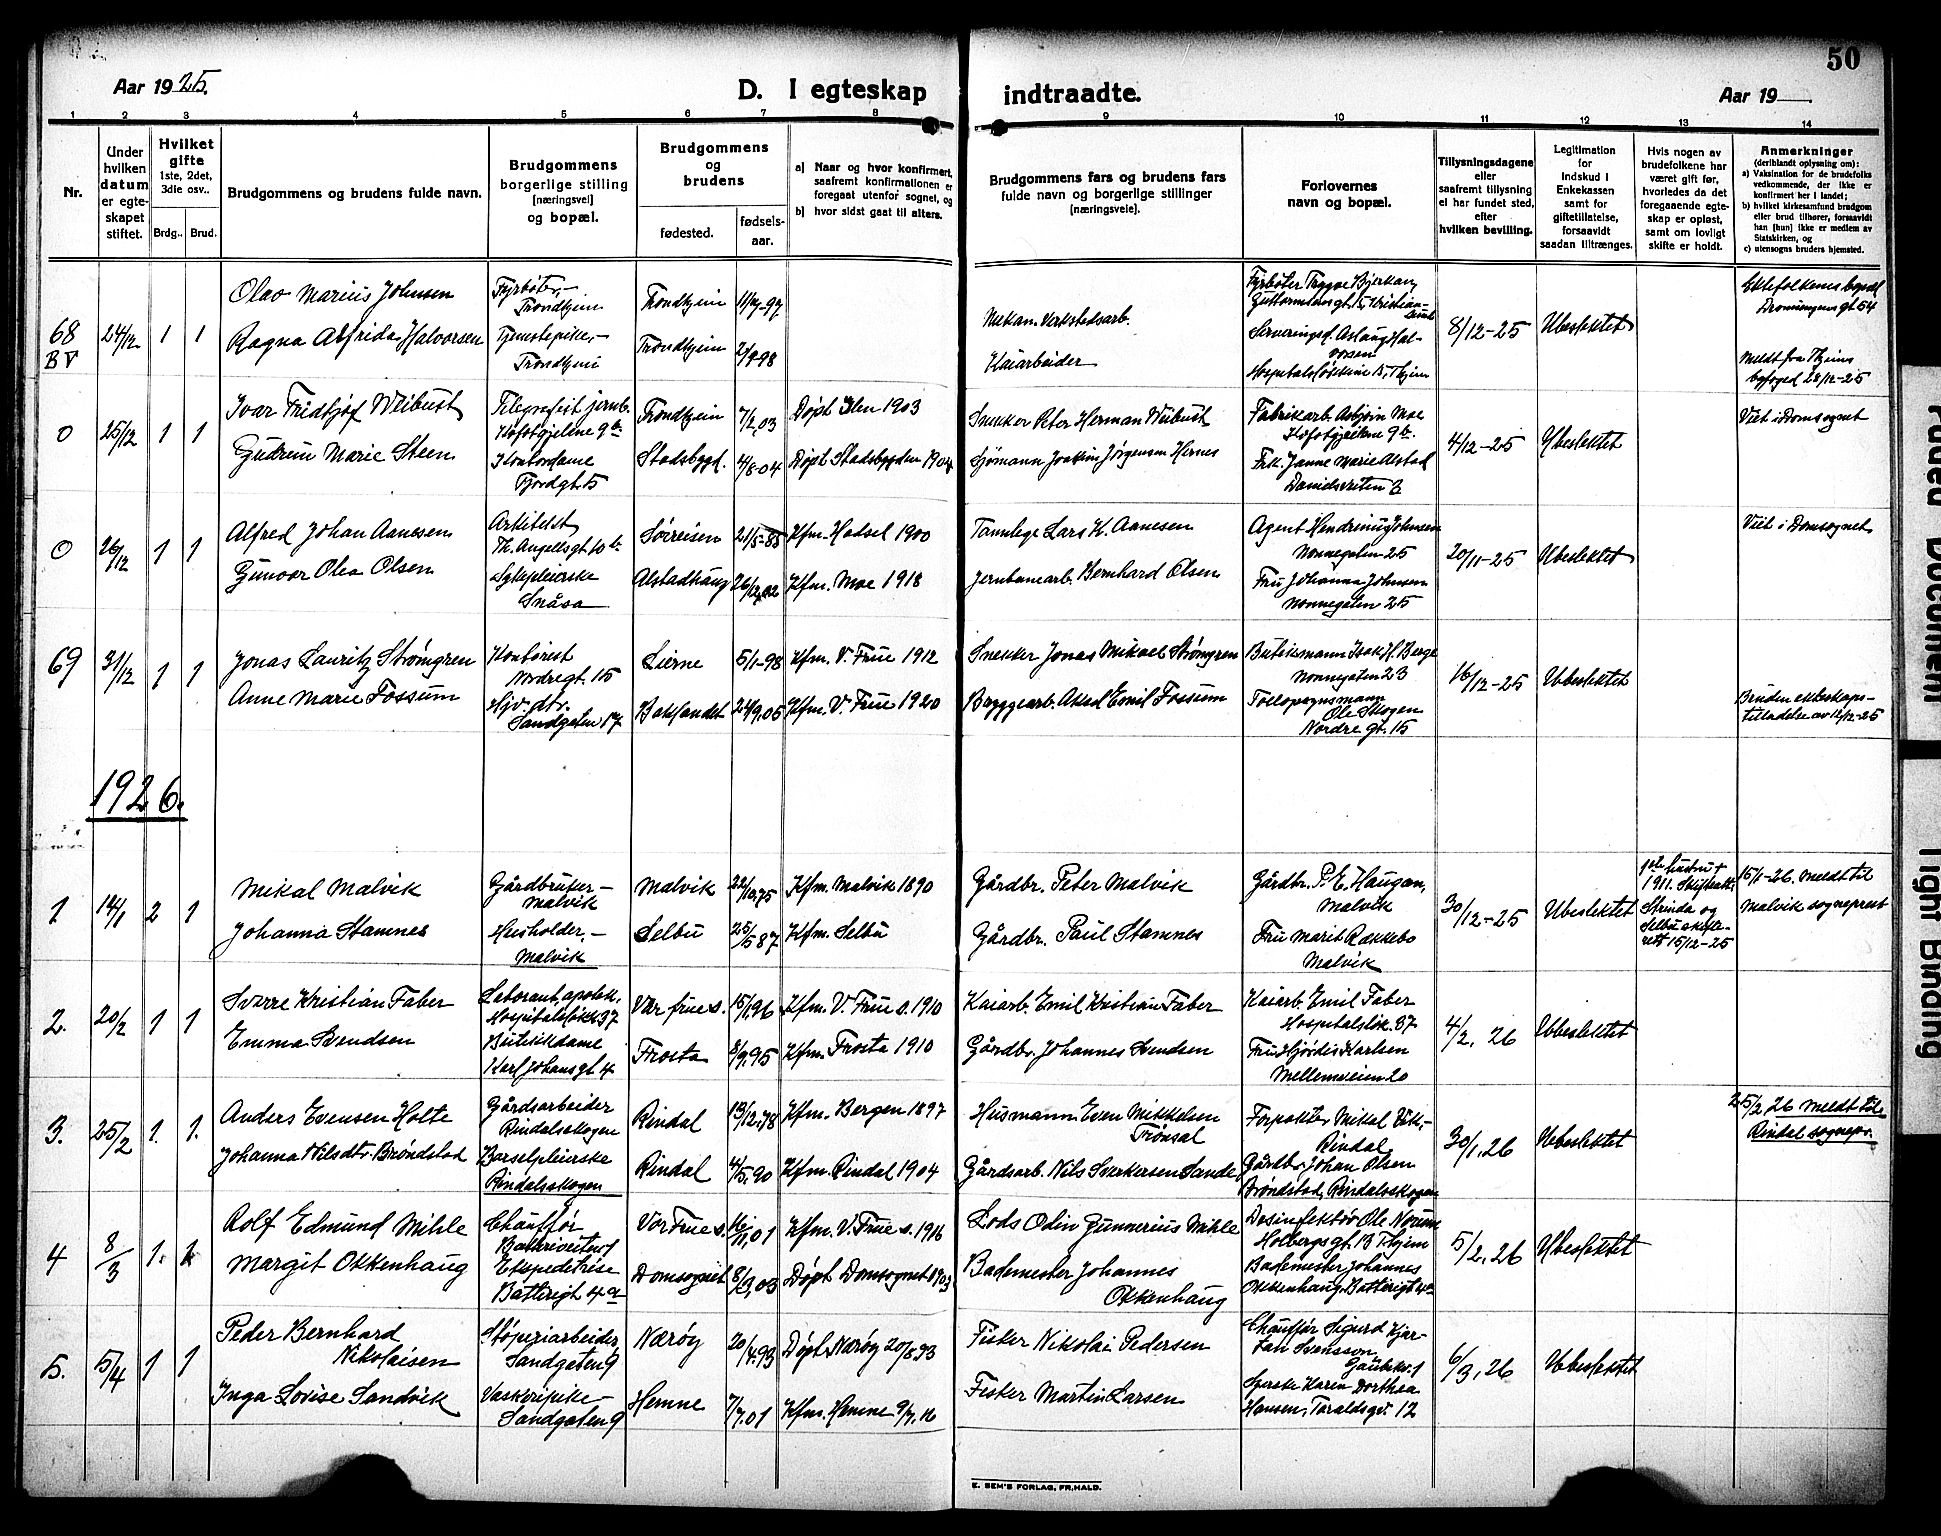 50
Aar 1925.
D. I egteskap indtraadte.
Aar 19
1 2 3 4 5 6 7 8 9 10 11 12 13 14
Nr.
Under hvilken datum er egteskapet stiftet.
Hvilket gifte 1ste, 2det, 3die osv..
Brdg.. Brud.
Brudgommens og brudens fulde navn.
Brudgommens borgerlige stilling (næringsvei) og bopæl.
Brudgommens og brudens
fødested. fødsels-aar.
a) Naar og hvor konfirmert, saafremt konfirmationen er foregaat utenfor sognet, og
b) hvor sidst gaat til alters.
Brudgommens fars og brudens fars fulde navn og borgerlige stillinger (næringsveie).
Forlovernes navn og bopæl.
Tillysningsdagene eller saafremt tillysning ei har fundet sted, efter hvilken bevilling.
Legitimation for indskud i Enkekassen samt for giftetillatelse, forsaavidt saadan tiltrænges.
Hvis nogen av brudefolkene har været gift før, hvorledes da det foregaaende egteskap er opløst, samt om lovligt skifte er holdt.
Anmerkninger (deriblandt oplysning om):
a) Vaksination for de brudefolks vedkommende, der ikke er konfirmert her i landet;
b) hvilket kirkesamfund brudgom eller brud tilhører, forsaavidt han (hun) ikke er medlem av Statskirken, og
c) utensogns bruders hjemsted.
68 BV 24/12 1 1
Olav Marius Johnsen
Fyrbøter,- Trondhjem
Trondhjem
Mekan. Verkstedsarb.
Fyrbøter Trygve Bjerkan,
Guttormsensgt. 5, Kristiansund
8/12-25 Ubeslektet
Ektefolkenes bopæl
Dronningensgt 54
Ragna Alfrida Halvorsen
Tjenestepike,- Trondhjem
Trondhjem
Kaiarbeider
Serveringsd. Aslaug Halvorsen
Hospitalsløkken 15, Thjem
Meldt fra Thjems
byfoged 28/12-25
0 25/12 1 1
Ivar Fridtjof Wibust
Telegrafist jernb.
Trondhjem 7/2.03 Døpt Ilen 1903
Snekker Peter Herman Wibust
Fabrikarb. Asbjørn Moe
4/12-25 Ubeslektet
Viet i Domsognet
Gudrun Marie Steen
Kontordame
Fjordgt. 5
Stadsbygd. 4/8-04 Døpt Stadsbygden 1904
Sjømann Joakim Jørgensen Hernes
Frk. Janne Marie Alstad
0 26/12 1 1
Alfred Johan Aanesen
Arkitekt
Th. Angellsgt 10 b
Sørreisen 21/5-85 Kfm. Hadsel 1900
Tannlege Lars K. Aanesen
Agent Hendrining Johnsen
Nonnegaten 25
20/11-25 Ubeslektet
Viet i Domsognet
Gunvor Olea Olsen
Sykepleierske
Snåsa
Alstadhaug 26/12.02 Kfm. Moe 1918
Jernbanearb. Bernhard Olsen
Fru Johanna Johnsen
Nonnegaten 25
69 31/12 1 1
Jonas Lauritz Strømgren
Kontorist
Nordregt. 15
Lierne 5/1-98 Kfm. V. Frue 1912
Snekker Jonas Mikael Strømgren
Butiksmann Isak H. Berge
Nonnegaten 23
16/12-25 Ubeslektet
Anne Marie Fossum
Hjv. dtr.
Sandgaten 17
Baklandet 24/9.05 Kfm. V. Frue 1920
Bryggearb. Aksel Emil Fossum
Tolloppsynsmann
Ole Skogen
Nordre gt. 15
Bruden ekteskaps-
tilladelse av 12/12-25
1926.
1 14/1 2 1
Mikal Malvik
Gårdbruker-
Malvik
Malvik 22/10.75 Kfm. Malvik 1890
Gårdbr. Peter Malvik
Gårdbr. P. E. Haugan,
Malvik
30/12-25 Ubeslektet
1ste hustru †
1911. Skifteatt.
Strinda og
Selbu skifte-
rett 15/12-25
15/1-26. Meldt til
Malvik sogneprest
Johanna Stamnes
Husholder.-
Malvik
Selbu 25/5 87 Kfm. Selbu
Gårdbr. Paul Stamnes
Fru Marit Rækkebo
Malvik
2. 20/2 1 1
Sverre Kristian Faber
Laborant, apotek.
Hospitalsløkk 37
Vår frue s. 15/1.96 Kfm. V. Frue s. 1910
Kaiarb. Emil Kristian Faber
Kaiarb. Emil Faber
Hospitalsløk. 37
4/2. 26 Ubeslektet
Emma Svendsen
Butikkdame
Karl Johansgt 4
Frosta 8/9.95 Kfm. Frosta 1910
Gårdbr. Johannes Svendsen
Fru Hjørdis Karlsen
Mellemveien 20
3. 25/2 1. 1.
Anders Evensen Holte
Gårdsarbeider
Rindalsskogen
Rindal 13/12.78 Kfm. Bergen 1897
Husmann Even Mikkelsen
Trønsal
Forpakter Mikal Vik,-
Rindal
30/1.26 Ubeslektet
25/2 26 meldt til
Rindal sognepr.
Johanna Nilsdtr. Brøndstad
Barselpleierske
Rindalsskogen
Rindal 4/5.90 Kfm. Rindal 1904
Gårdsarb. Nils Sverkersen Sande
Gårdbr. Johan Olsen
Brøndstad, Rindalsskogen
4 8/3 1. 1.
Rolf Edmund Mihle
Chauffør
Vor Frue s. 16/11.01 Kfm. V. Frue s. 1916
Lods Odin Gunnerius Mihle
Desinfektør Ole Norum
Holbergs gt. 13 Thjem
5/2.26 Ubeslektet
Margit Okkenhaug
Ekspeditrise
Batterigt 4a
Domsognet 8/3.03 Døpt Domsognet 1903
Bademester Johannes
Okkenhaug
Bademester Johannes
Okkenhaug, Batterigt 4a
5. 5/4 1 1
Peder Bernhard
Nikolaisen
Støperiarbeider
Sandgaten 9
Nærøy 20/4.93 Døpt Nærøy 20/5.93
Fisker Nikolai Pedersen
Chauffør Sigurd Kjar-
tan Svansson,
Gaubekv. 1
6/3.26 Ubeslektet
Inga Lovise Sandvik
Vaskeripike-
Sandgaten 9
Hemne 7/7.01 Kfm. Hemne 9/7.16
Fisker Martin Larsen
Karin Dorthea
Hansen, Taraldsgv. 12
E. SEM'S FORLAG, FR.HALD.
Faded Document
Tight Binding